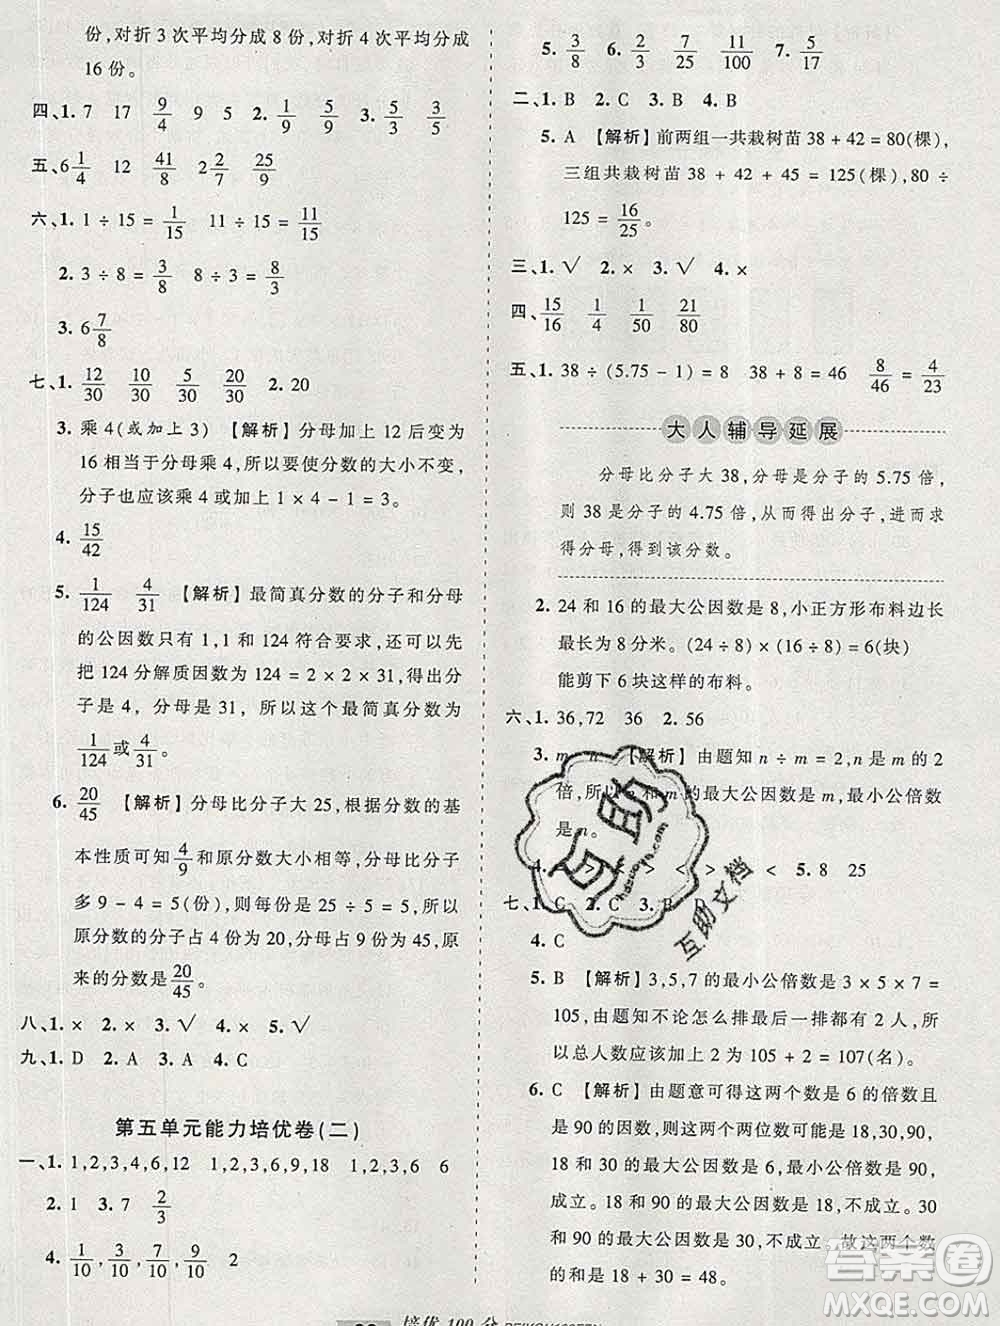 份,对折 3 次平均分成 8 份,对折 4 次平均分成
16 份。
四、1. 7 17 9/4 9 5 2. 1/9 5/9 3. 5/3 3/5
五、6 1/4 12 41/8 2 2/7 25/9
六、1. 1 ÷ 15 = 1/15 11 ÷ 15 = 11/15
2. 3 ÷ 8 = 3/8 8 ÷ 3 = 8/3
3. 6 7/8
七、1. 12/30 10/30 5/30 20/30 2. 20
3. 乘 4(或加上 3) 【解析】分母加上 12 后变为
16 相当于分母乘 4,所以要使分数的大小不变,
分子也应该乘 4 或加上 1 × 4 - 1 = 3。
4. 15/42
5. 1/124 4/31 【解析】最简真分数的分子和分母
的公因数只有 1,1 和 124 符合要求,还可以先
把 124 分解质因数 124 = 2 × 2 × 31,故得出分
子是 4,分母是 31,所以这个最简真分数为
1/124或4/31。
6. 20/45 【解析】分母比分子大 25,根据分数的基
本性质可知4/9和原分数大小相等,分母比分子
多 9 - 4 = 5(份),则每份是 25 ÷ 5 = 5,所以
原分数的分子占 4 份为 20,分母为 45,所以原
来的分数是20/45。
八、1. × 2. × 3. √ 4. × 5. √
九、1. D 2. A 3. A 4. C
第五单元能力培优卷(二)
一、1. 1,2,3,4,6,12 1,2,3,6,9,18 1,2,3,6 6
2. 1 3. 7 2/3
4. 1/10,3/10,7/10,9/10 2
5. 3/8 6. 2/3 7/20 11/100 7. 5/17
二、1. B 2. C 3. B 4. B
5. A 【解析】前两组一共栽树苗 38 + 42 = 80(棵),
三组共栽树苗 38 + 42 + 45 = 125(棵),80 ÷
125 = 16/25。
三、1. √ 2. × 3. √ 4. ×
四、15/16 1/4 1/50 21/80
五、1. 38 ÷ (5.75 - 1) = 8 38 + 8 = 46 8/46 = 4/23
大人辅导延展
分母比分子大 38,分母是分子的 5.75 倍,
则 38 是分子的 4.75 倍,从而得出分子,进而求
得分母,得到该分数。
2. 24 和 16 的最大公因数是 8,小正方形布料边长
最长为 8 分米。(24 ÷ 8) × (16 ÷ 8) = 6(块)
能剪下 6 块这样的布料。
六、1. 36,72 36 2. 56
3. m n 【解析】由题知 n ÷ m = 2,n 是 m 的 2
倍,所以 n 和 m 的最大公因数是 m,最小公倍数
是 n。
4. > > < > < 5. 8 25
七、1. C 2. C 3. B D
4. C
5. B 【解析】3,5,7 的最小公倍数是 3 × 5 × 7 =
105,由题知不论怎么排最后一排都有 2 人,所
以总人数应该加上 2 为 105 + 2 = 107(名)。
6. C 【解析】由题意可得这两个数是 6 的倍数且
是 90 的因数,这两个两位数可能是 18,30,90,
18 和 30 的最大公因数是 6,最小公倍数是 90,
成立。18 和 90 的最大公因数是 18,不成立。30
和 90 的最大公因数是 30,不成立,故这两个数
是 18 和 30,18 + 30 = 48。
培优 100 分
互助
互助文档
答案圈
MXQE.COM